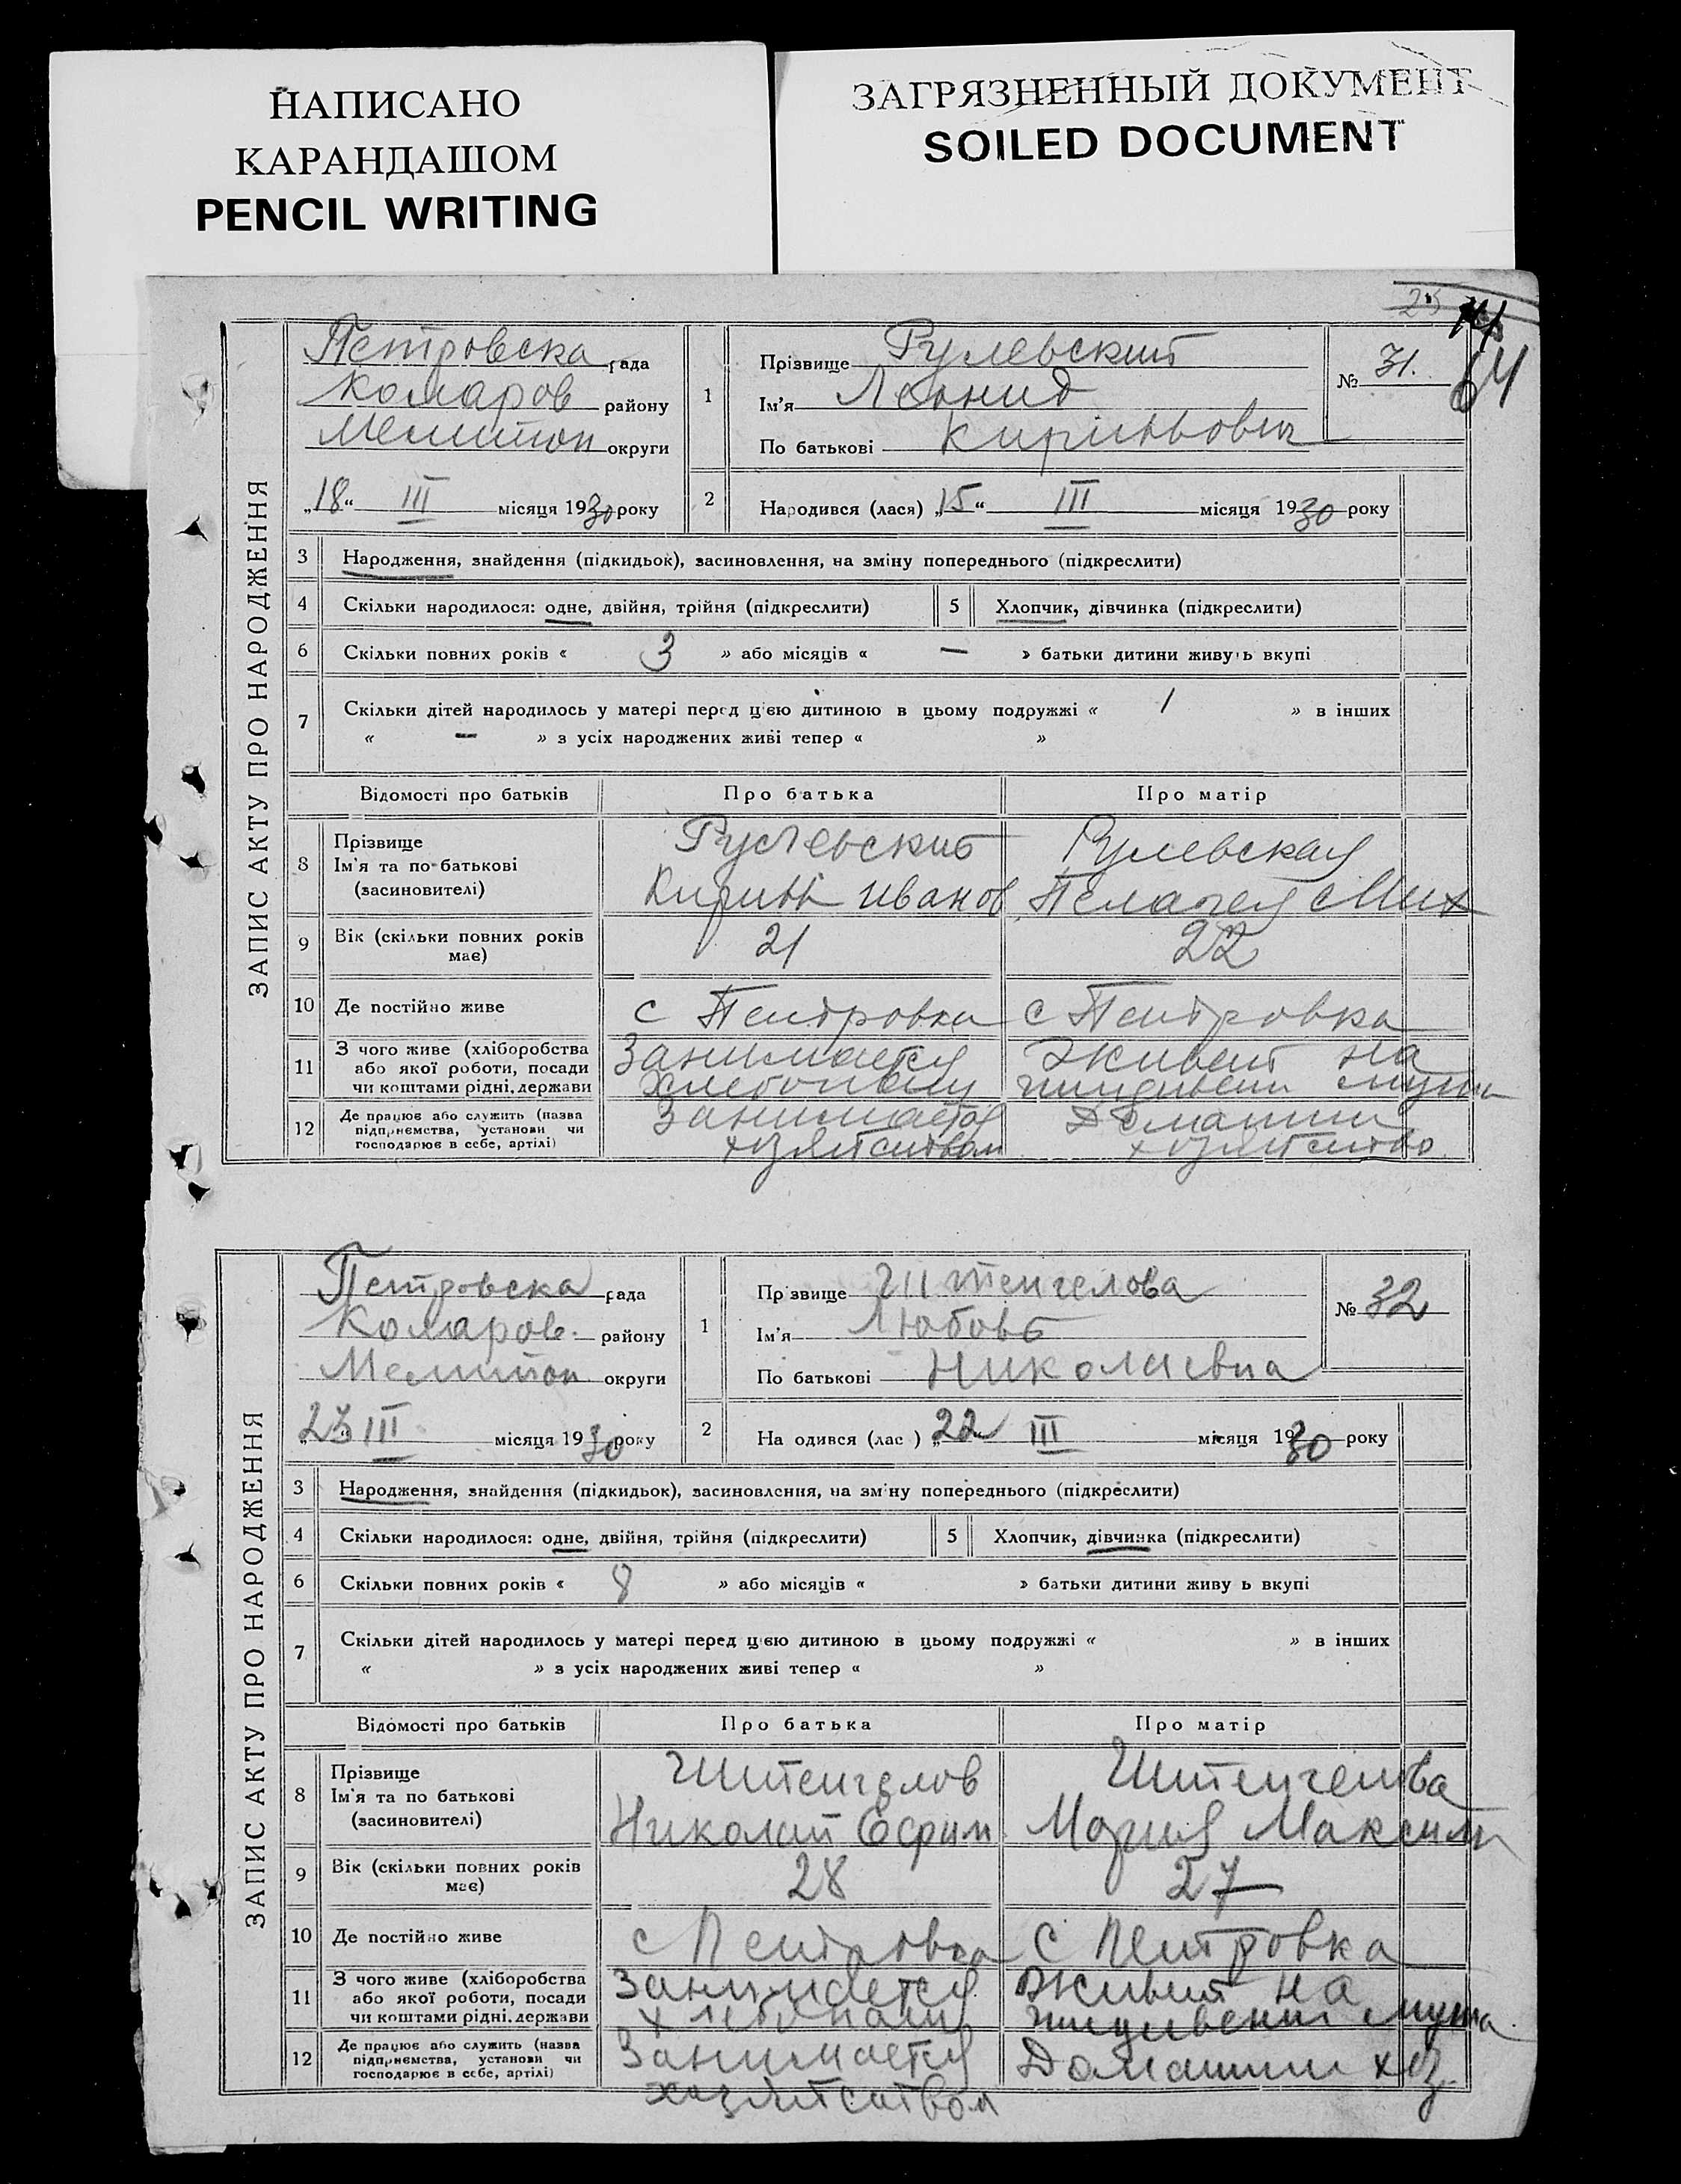 НАПИСАНО
КАРАНДАШОМ
PENCIL WRITING
ЗАГРЯЗНЕННЫЙ ДОКУМЕНТ
SOILED DOCUMENT
25
64
ЗАПИС АКТУ ПРО НАРОДЖЕННЯ
Петровска рада
Комаров району
Мелитоп округи
„18“ III місяця 1930 року
1
Прізвище Рулевский
Ім'я Леонид
По батькові
№ 31.
2
Народився (лася) „15“ III місяця 1930 року
3 Народження, знайдення (підкидьок), засиновлення, на зміну попереднього (підкреслити)
4 Скільки народилося: одне, двійня, трійня (підкреслити) 5 Хлопчик, дівчинка (підкреслити)
6 Скільки повних років « 3 » або місяців « — » батьки дитини живу ь вкупі
7 Скільки дітей народилось у матері перед цією дитиною в цьому подружжі « 1 » в інших
« — » з усіх народжених живі тепер « »
Відомості про батьків Про батька Про матір
8 Прізвище
Ім'я та по-батькові
(засиновителі)
Рулевский
Иванов
Рулевская
Пелагея Мих
9 Вік (скільки повних років має) 21 22
10 Де постійно живе с Петровка с Петровка
11 З чого живе (хліборобства
або якої роботи, посади
чи коштами рідні, держави
Занимается
Живет на
иждивении мужа
12 Де працює або служить (назва
підприємства, установи чи
господарює в себе, артілі)
Занимается
хозяйством
Домашни
хозяйство
ЗАПИС АКТУ ПРО НАРОДЖЕННЯ
Петровска рада
Комаров. району
Мелитоп округи
„23 III місяця 1930 року
1
Пр звище Штенгелова
Ім'я Любовь
По батькові Николаевна
№ 32
2
На одився (лас ) „22 III місяця 1930 року
3 Народження, знайдення (підкидьок), засиновлення, на зм ну попереднього (підкреслити)
4 Скільки народилося: одне, двійня, трійня (підкреслити) 5 Хлопчик, дівчинка (підкреслити)
6 Скільки повних років « 8 » або місяців « » батьки дитини живу ь вкупі
7 Скільки дітей народилось у матері перед цією дитиною в цьому подружжі « » в інших
« » з усіх народжених живі тепер « »
Відомості про батьків Про батька Про матір
8 Прізвище
Ім'я та по батькові
(засиновителі)
Штенгелов
Николай Ефим
Штенгелова
Мария Максим
9 Вік (скільки повних років має) 28 27
10 Де постійно живе с Петровка с Петровка
11 З чого живе (хліборобства
або якої роботи, посади
чи коштами рідні, держави
Занимается
Живет на
иждивении мужа
12 Де працює або служить (назва
підприємства, установи чи
господарює в себе, артілі)
Занимается
хозяйством
Домашни хоз.